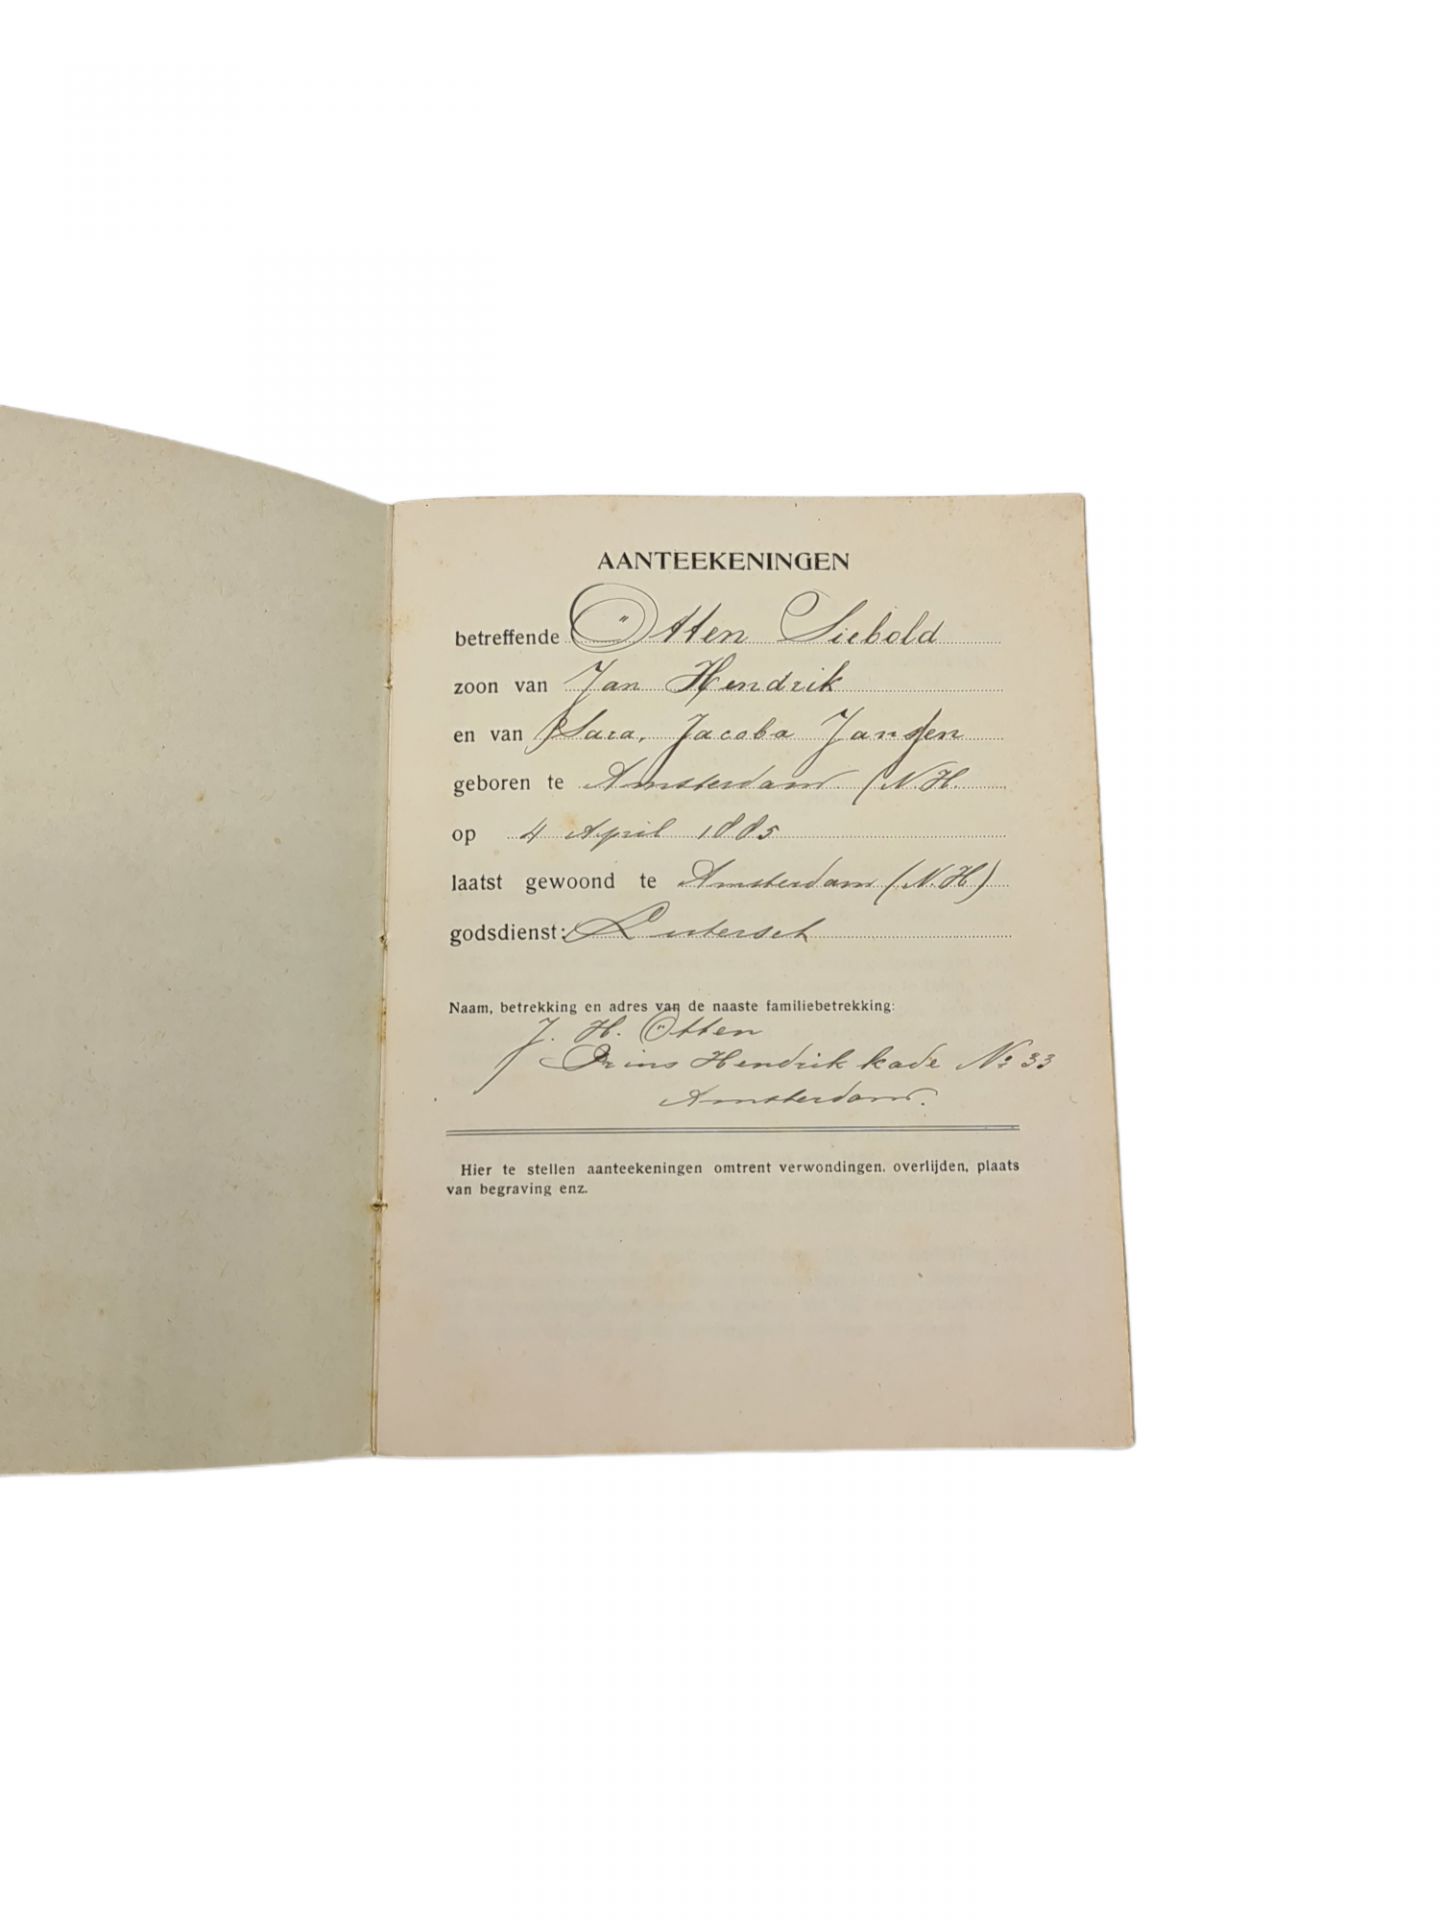 AANTEEKENINGEN
betreffende Ötten Siebold
zoon van Jan Hendrik
en van Sara, Jacoba Jansen
geboren te Amsterdam (N.H.
op 4 April 1885
laatst gewoond te Amsterdam (N.H)
godsdienst: Lutersch
Naam, betrekking en adres van de naaste familiebetrekking:
J. H. Ötten
Prins Hendrik kade No 33
Amsterdam.
Hier te stellen aanteekeningen omtrent verwondingen, overlijden, plaats
van begraving enz.